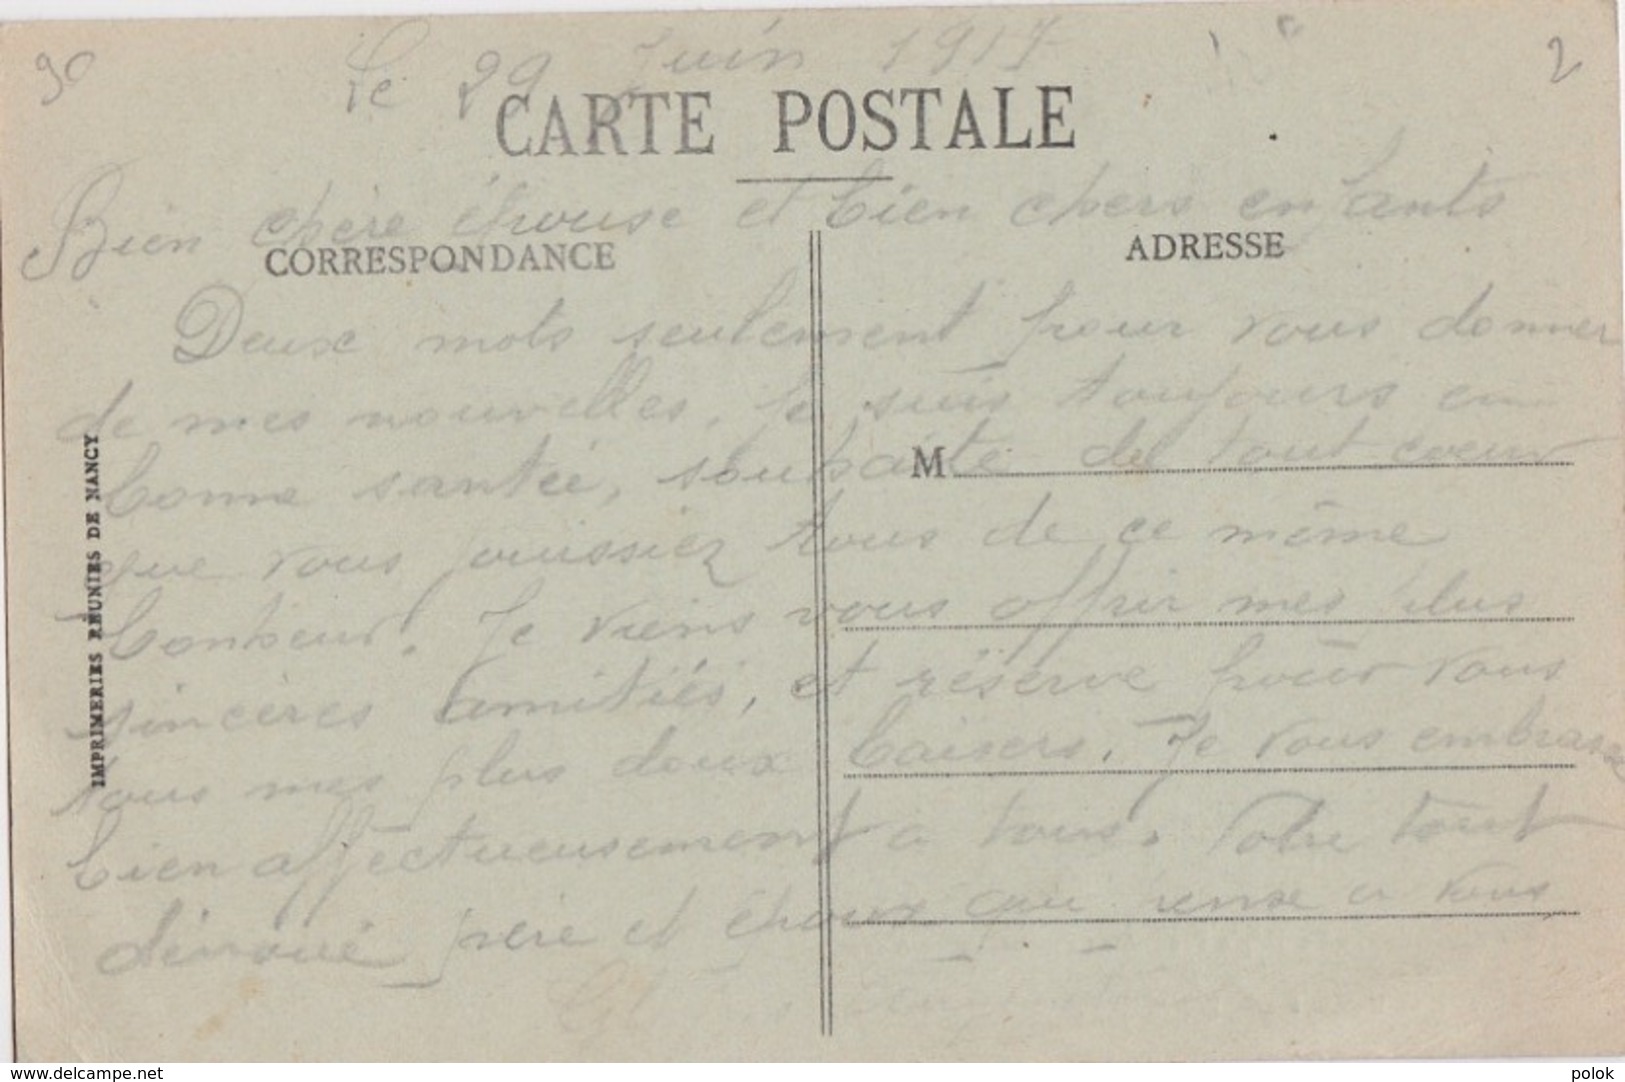 90
Le 29 Juin 1917
2
CARTE POSTALE
Bien chère épouse et bien chers enfants
CORRESPONDANCE
ADRESSE
Deux mots seulement pour vous donner
de mes nouvelles, je suis toujours en
bonne santée, souhaite de tout coeur
M
que vous puissiez tous de ce même
bonheur. Je viens vous offrir mes plus
sincères amitiés, et réserve pour vous
tous mes plus doux baisers. Je vous embrasse
bien affectueusement a tous. Votre tout
dévoué père et époux qui pense a vous
IMPRIMERIES RÉUNIES DE NANCY
www.delcampe.net
polok